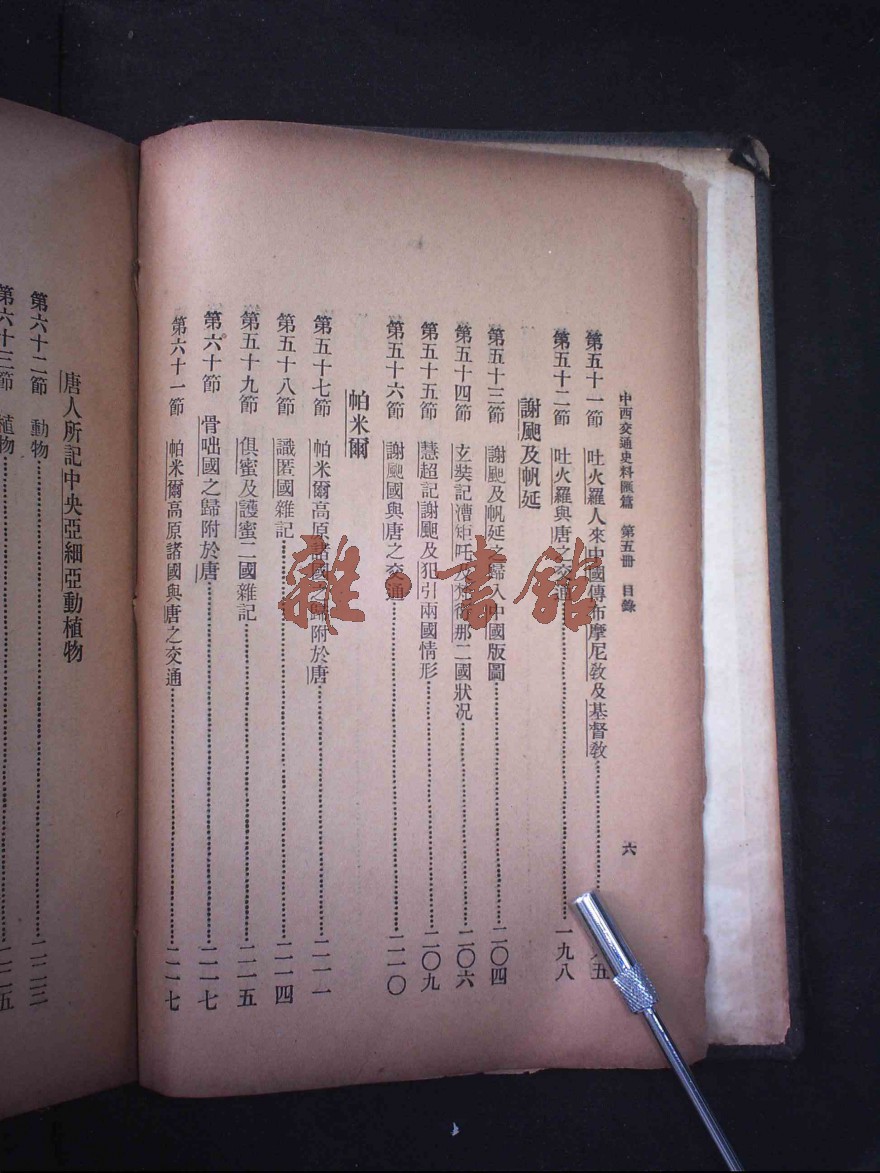 中西交通史料匯篇 第五冊 目錄 六
第五十一節 吐火羅人來中國傳布摩尼教及基督教 八五
第五十二節 吐火羅與唐之交通 一九八
謝䫻及帆延
第五十三節 謝䫻及帆延之歸入中國版圖 二〇四
第五十四節 玄奘記漕矩吒 那二國狀况 二〇六
第五十五節 慧超記謝䫻及犯引兩國情形 二〇九
第五十六節 謝䫻國與唐之交通 二一〇
帕米爾
第五十七節 帕米爾高原諸國之歸附於唐 二一一
第五十八節 識匿國雜記 二一四
第五十九節 俱蜜及護蜜二國雜記 二一五
第六十節 骨咄國之歸附於唐 二一七
第六十一節 帕米爾高原諸國與唐之交通 二一七
唐人所記中央亞細亞動植物
第六十二節 動物 二二三
第六十三節 植物 二二五
雜·書館